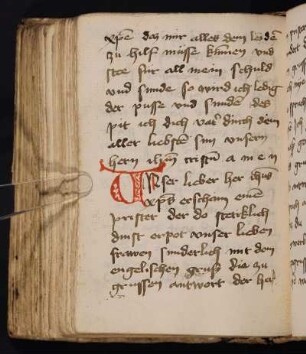 xpē daz mir alles dem leidē
zu hilf müsse kumen und
stee für all mein schuld
und sunde so wird ich ledig
der pusse und sunden des
pit ich dich vatter durch dein
aller liebsten sun unsern
hern ihm cristu a m e n
Unser lieber her ihus
xps erscham einē
prister der do sterklich
dinst erpot unser lieben
frawen sunderlich mit dem
engelischen gruß die zu
grussen antwort der her